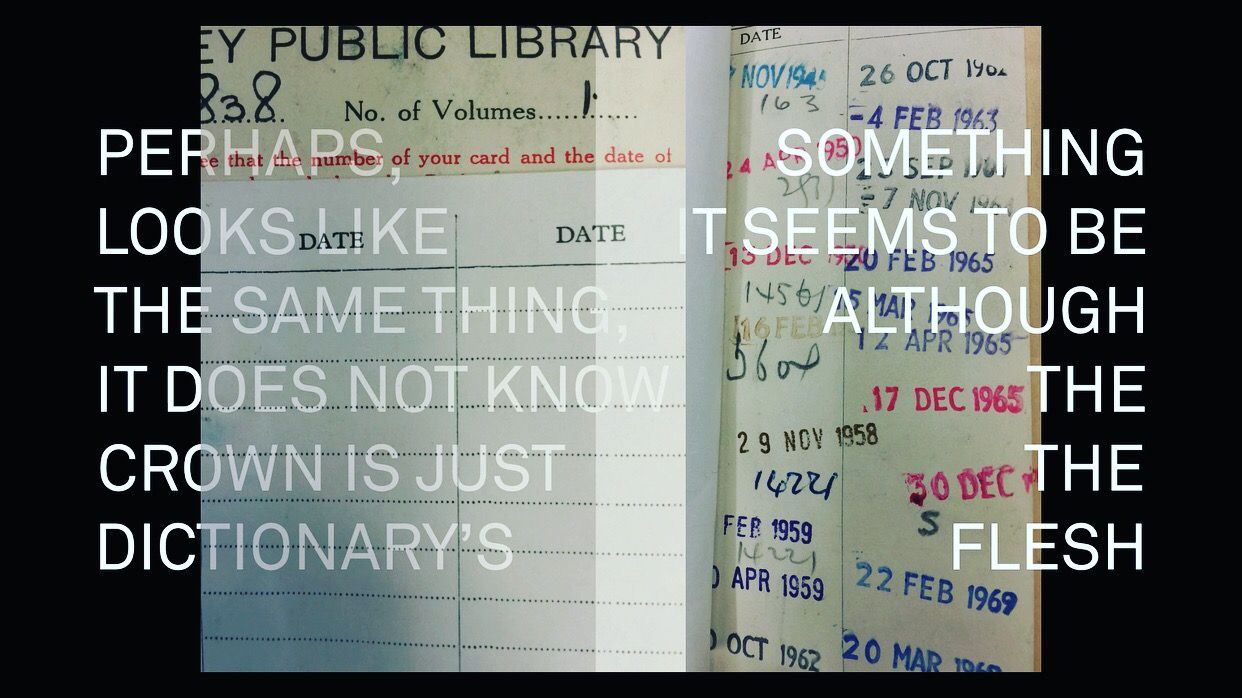 EY PUBLIC LIBRARY
838. No. of Volumes.....1......
ee that the number of your card and the date of
DATE DATE
PERHAPS,
LOOKS LIKE
THE SAME THING,
IT DOES NOT KNOW
CROWN IS JUST
DICTIONARY'S
SOMETHING
IT SEEMS TO BE
ALTHOUGH
THE
THE
FLESH
DATE
NOV 194
163
24 APR 1950
13 DEC 1950
16 FEB
29 NOV 1958
14221
FEB 1959
14221
APR 1959
OCT 1962
26 OCT 1962
-4 FEB 1963
SEP
-7 NOV 196
20 FEB 1965
MAR 1965
12 APR 1965
17 DEC 1965
30 DEC
S
22 FEB 1969
20 MAR 1969